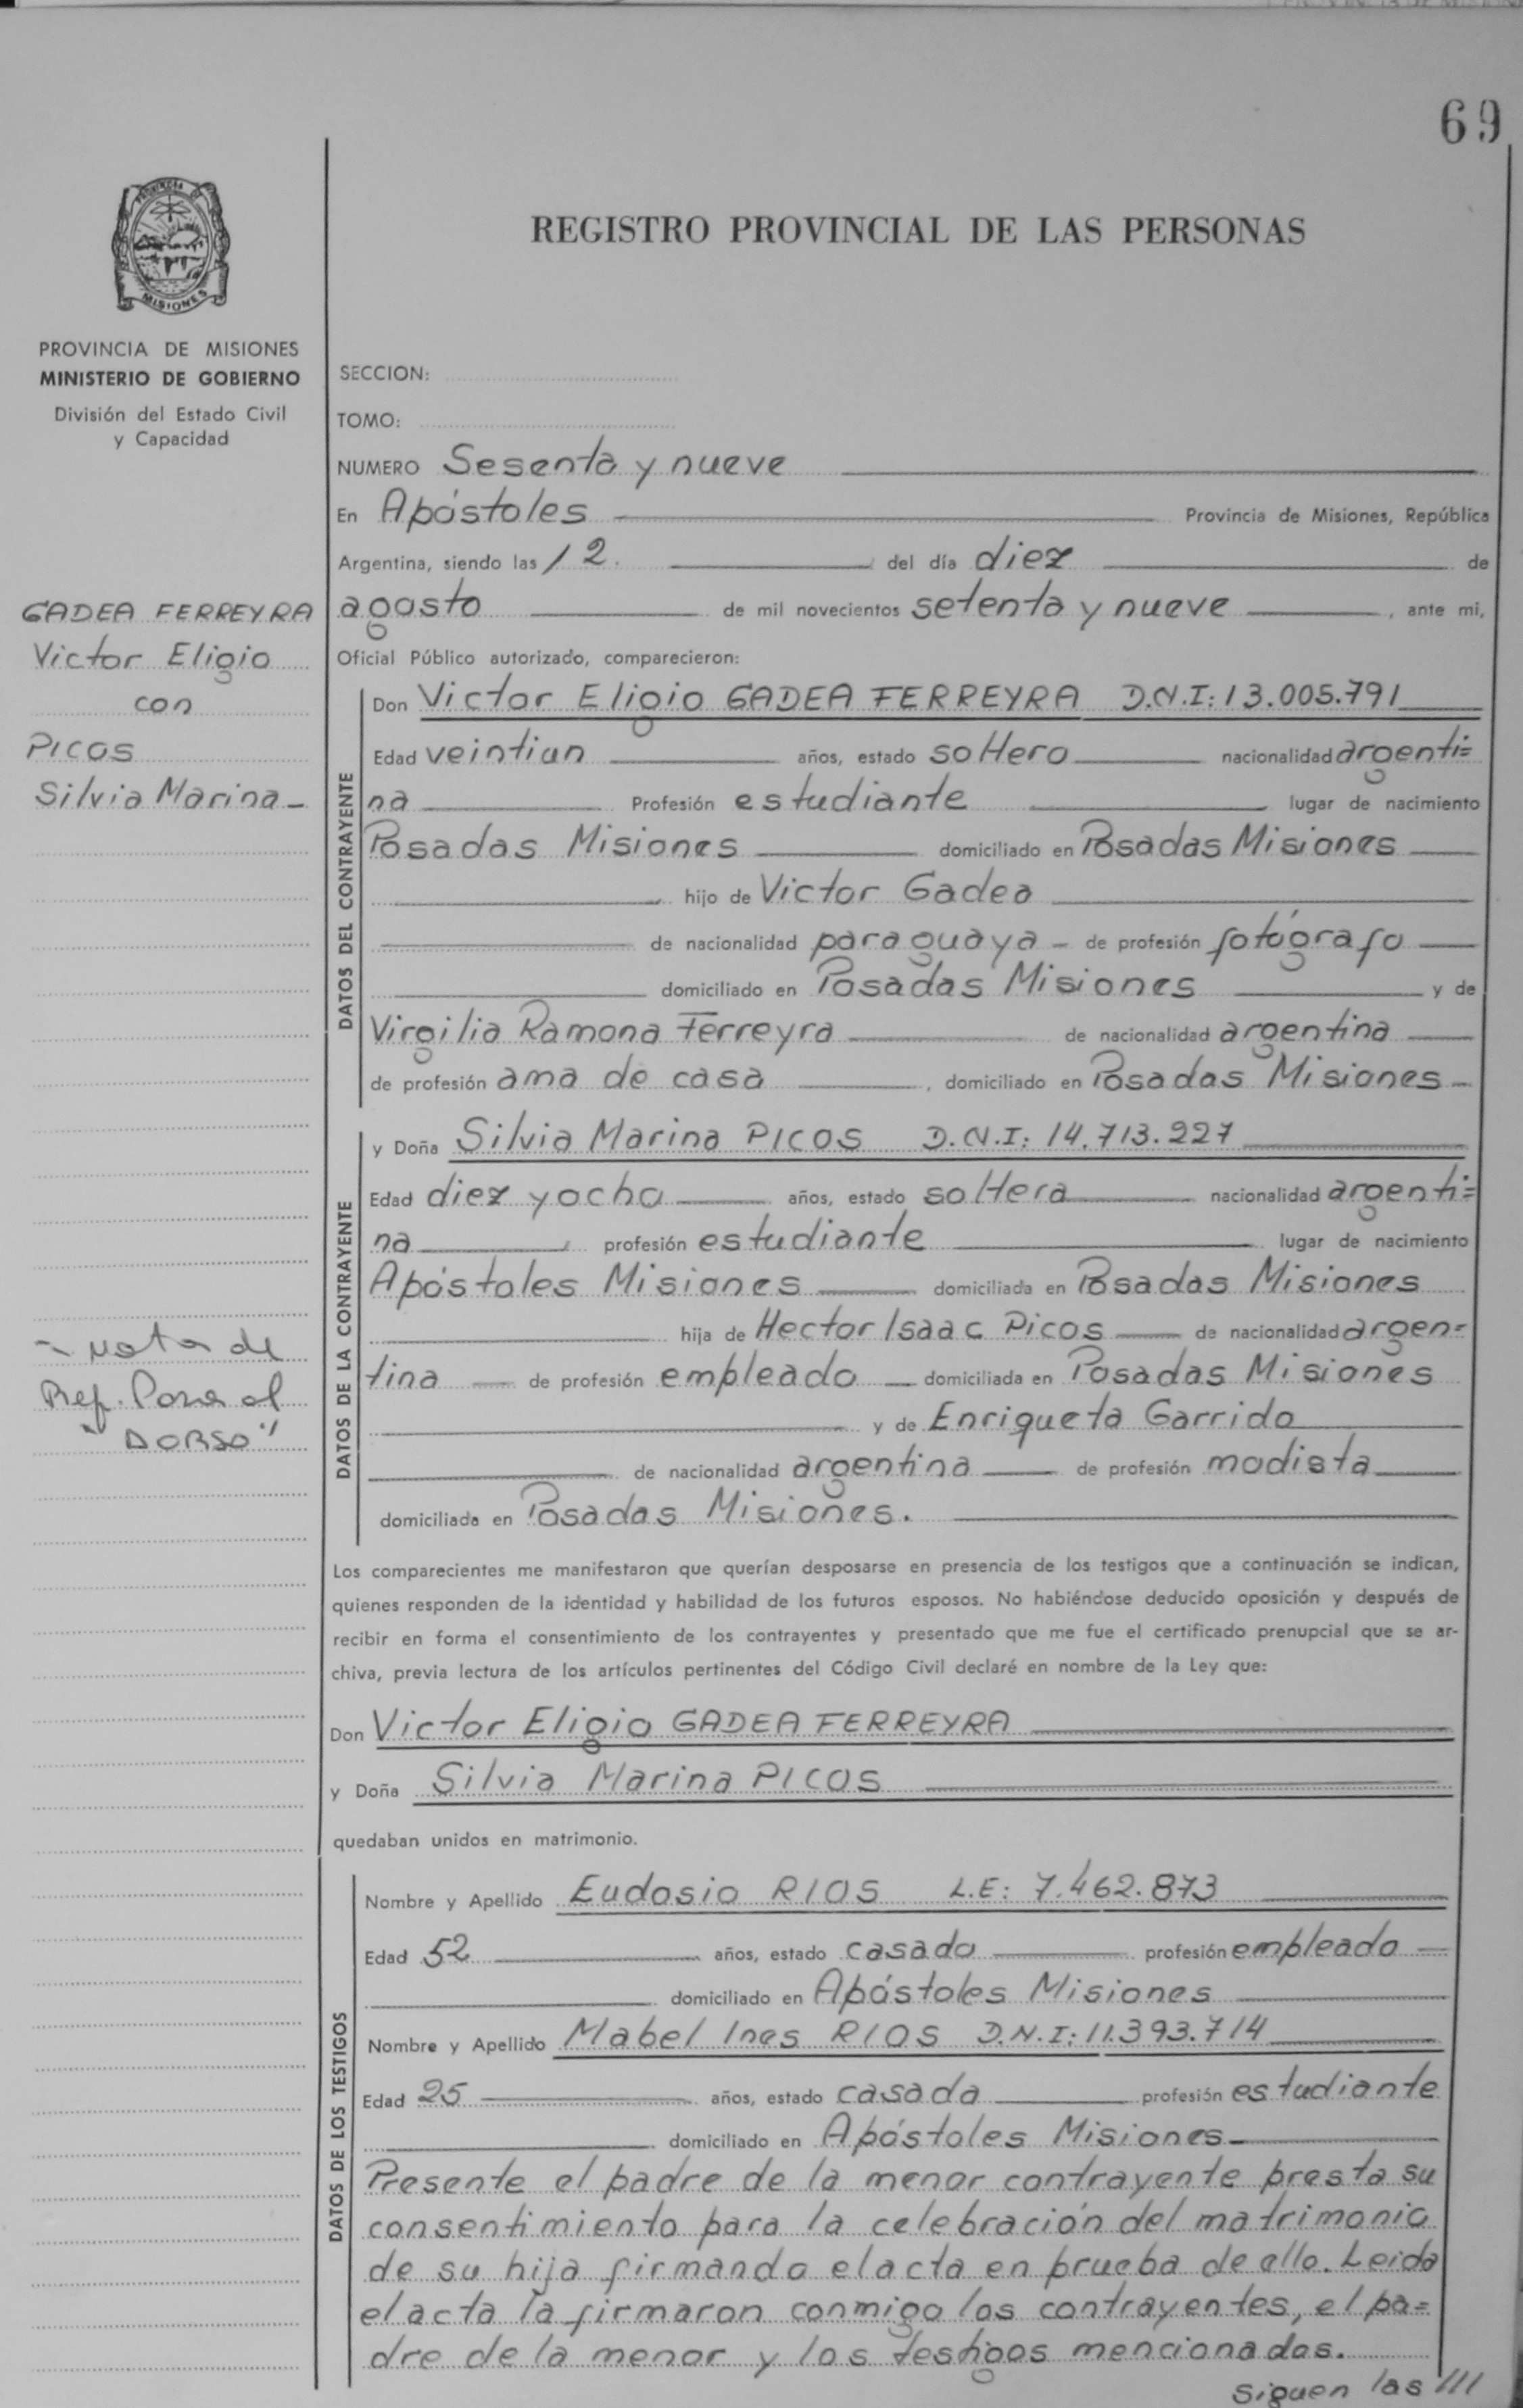 69
REGISTRO PROVINCIAL DE LAS PERSONAS
PROVINCIA DE
MISIONES
PROVINCIA DE MISIONES
MINISTERIO DE GOBIERNO
División del Estado Civil
y Capacidad
GADEA FERREYRA
Victor Eligio
con
PICOS
Silvia Marina_
- Nota de
Ref. Pone al
"DORSO"
SECCION:
TOMO:
NUMERO Sesenta y nueve
En Apóstoles Provincia de Misiones, República
Argentina, siendo las 12. del día diez de
agosto de mil novecientos setenta y nueve, ante mi,
Oficial Público autorizado, comparecieron:
DATOS DEL CONTRAYENTE
Don Victor Eligio GADEA FERREYRA D.N.I: 13.005.791
Edad veintiun años, estado soltero nacionalidad argenti=
na Profesión estudiante lugar de nacimiento
Posadas Misiones domiciliado en Posadas Misiones
hijo de Victor Gadea
de nacionalidad paraguaya - de profesión fotógrafo
domiciliado en Posadas Misiones y de
Virgilia Ramona Ferreyra de nacionalidad argentina
de profesión ama de casa, domiciliado en Posadas Misiones
DATOS DE LA CONTRAYENTE
y Doña Silvia Marina PICOS D.N.I: 14.713.227
Edad diez y ocho años, estado soltera nacionalidad argenti=
na profesión estudiante lugar de nacimiento
Apóstoles Misiones domiciliada en Posadas Misiones
hija de Hector Isaac Picos de nacionalidad argen=
tina de profesión empleado domiciliada en Posadas Misiones
y de Enriqueta Garrido
de nacionalidad argentina de profesión modista
domiciliada en Posadas Misiones.
Los comparecientes me manifestaron que querían desposarse en presencia de los testigos que a continuación se indican,
quienes responden de la identidad y habilidad de los futuros esposos. No habiéndose deducido oposición y después de
recibir en forma el consentimiento de los contrayentes y presentado que me fue el certificado prenupcial que se ar-
chiva, previa lectura de los artículos pertinentes del Código Civil declaré en nombre de la Ley que:
Don Victor Eligio GADEA FERREYRA
y Doña Silvia Marina PICOS
quedaban unidos en matrimonio.
DATOS DE LOS TESTIGOS
Nombre y Apellido Eudosio RIOS L.E: 7.462.873
Edad 52 años, estado casado profesión empleado
domiciliado en Apóstoles Misiones
Nombre y Apellido Mabel Ines RIOS D.N.I: 11.393.714
Edad 25 años, estado casada profesión estudiante
domiciliado en Apóstoles Misiones
Presente el padre de la menor contrayente presta su
consentimiento para la celebración del matrimonio
de su hija firmando el acta en prueba de ello. Leida
el acta la firmaron conmigo los contrayentes, el pa=
dre de la menor y los testigos mencionados.
siguen las ///